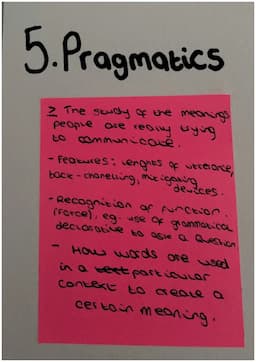 5. Pragmatics
> The study of the meanings
people are really trying
to communicate.
- Features: lenghts of utterance,
back-channelling, mitigating
devices.
- Recognition of function.
(Force), eg. use of grammatical
declarative to ask a question
- How words are used
in a particular
context to create a
certain meaning.